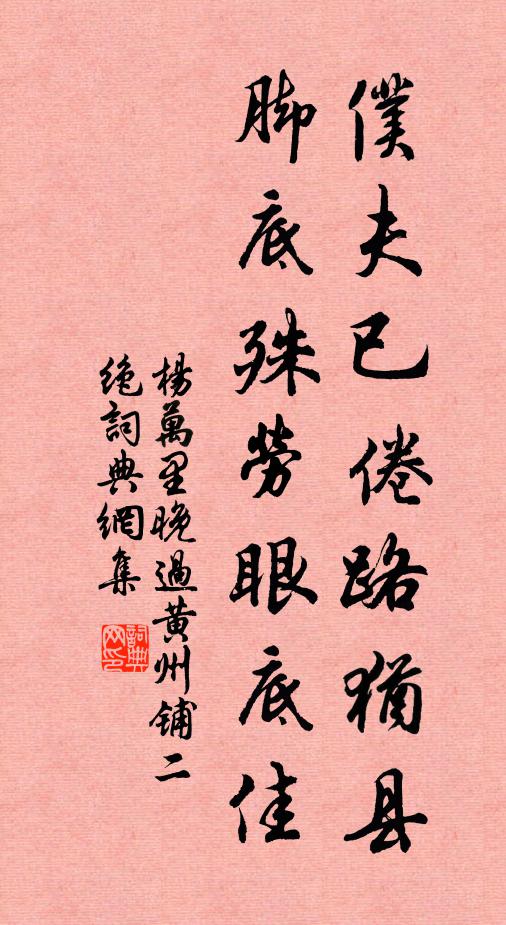 僕夫已倦路猶县
脚底殊勞眼底佳
楊萬里晚過黃州铺二
絶詞典網集
詞典网印